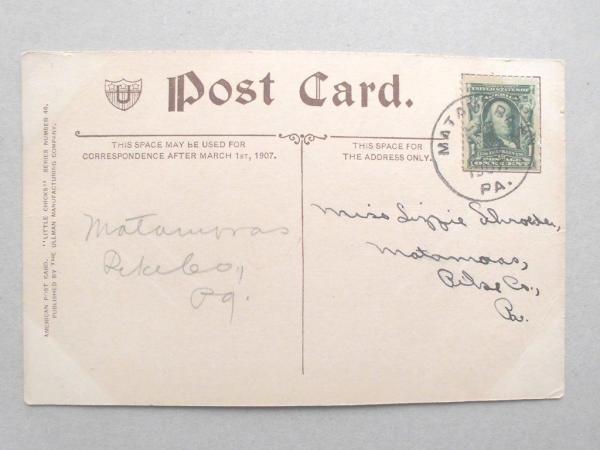 U
Post Card.
THIS SPACE MAY BE USED FOR
CORRESPONDENCE AFTER MARCH 1ST, 1907.
THIS SPACE IS FOR
THE ADDRESS ONLY.
AMERICAN POST CARD. "LITTLE CHICKS" SERIES NUMBER 46.
PUBLISHED BY THE ULLMAN MANUFACTURING COMPANY.
Matamoras
Pike Co.,
Pa.
Miss Lizzie Schroeder,
Matamoras,
Pike Co.,
Pa.
PA.
ONE CENT